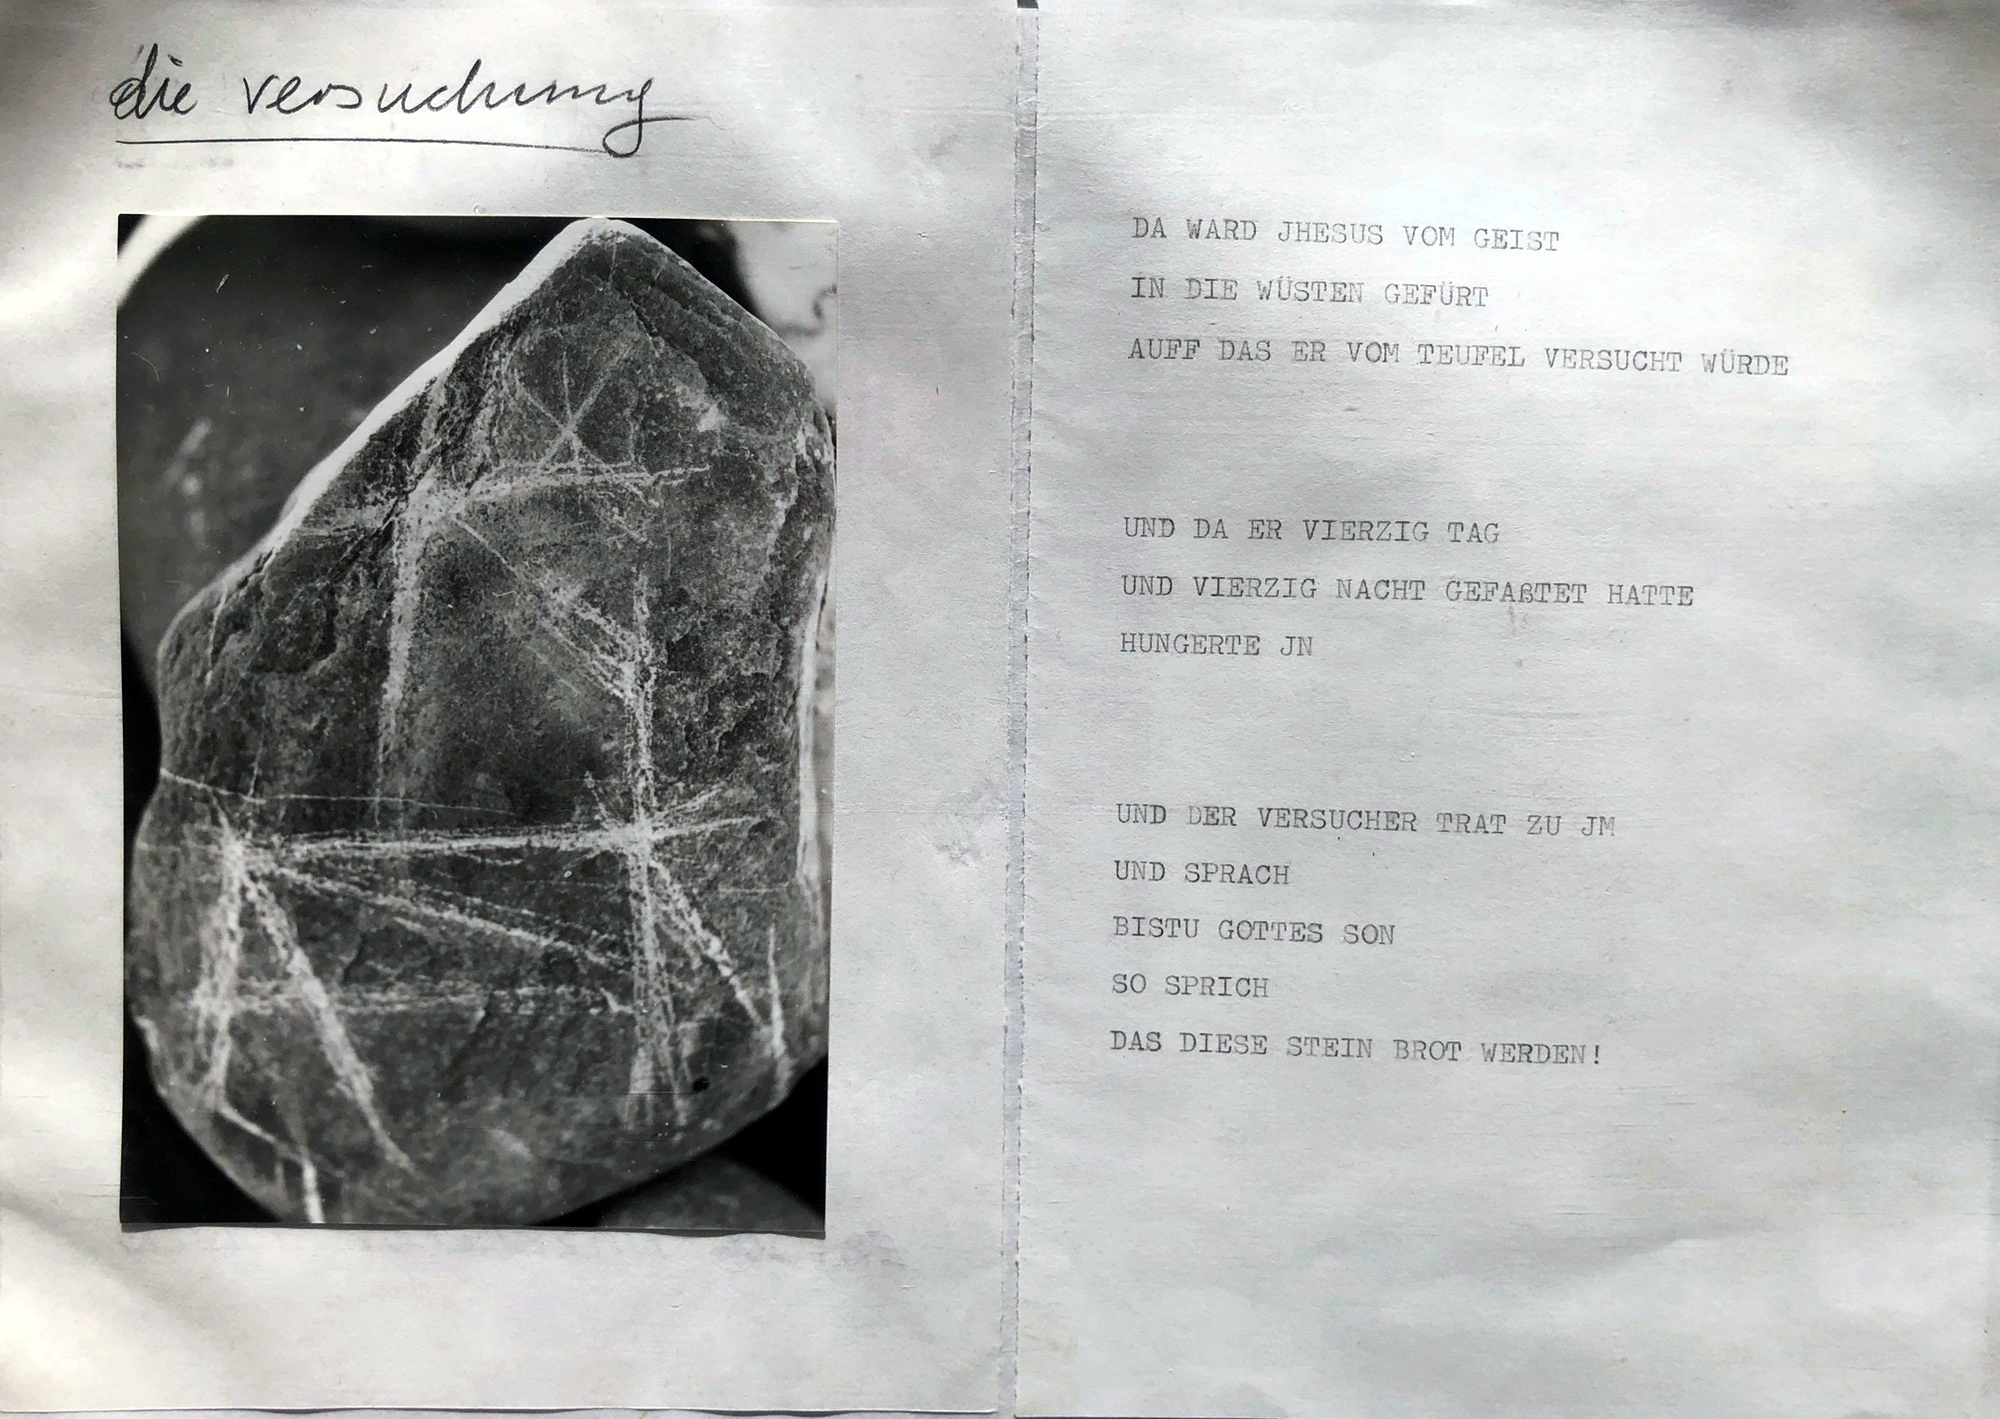 die versuchung
DA WARD JHESUS VOM GEIST
IN DIE WÜSTEN GEFÜRT
AUFF DAS ER VOM TEUFEL VERSUCHT WÜRDE
UND DA ER VIERZIG TAG
UND VIERZIG NACHT GEFAßTET HATTE
HUNGERTE JN
UND DER VERSUCHER TRAT ZU JM
UND SPRACH
BISTU GOTTES SON
SO SPRICH
DAS DIESE STEIN BROT WERDEN!